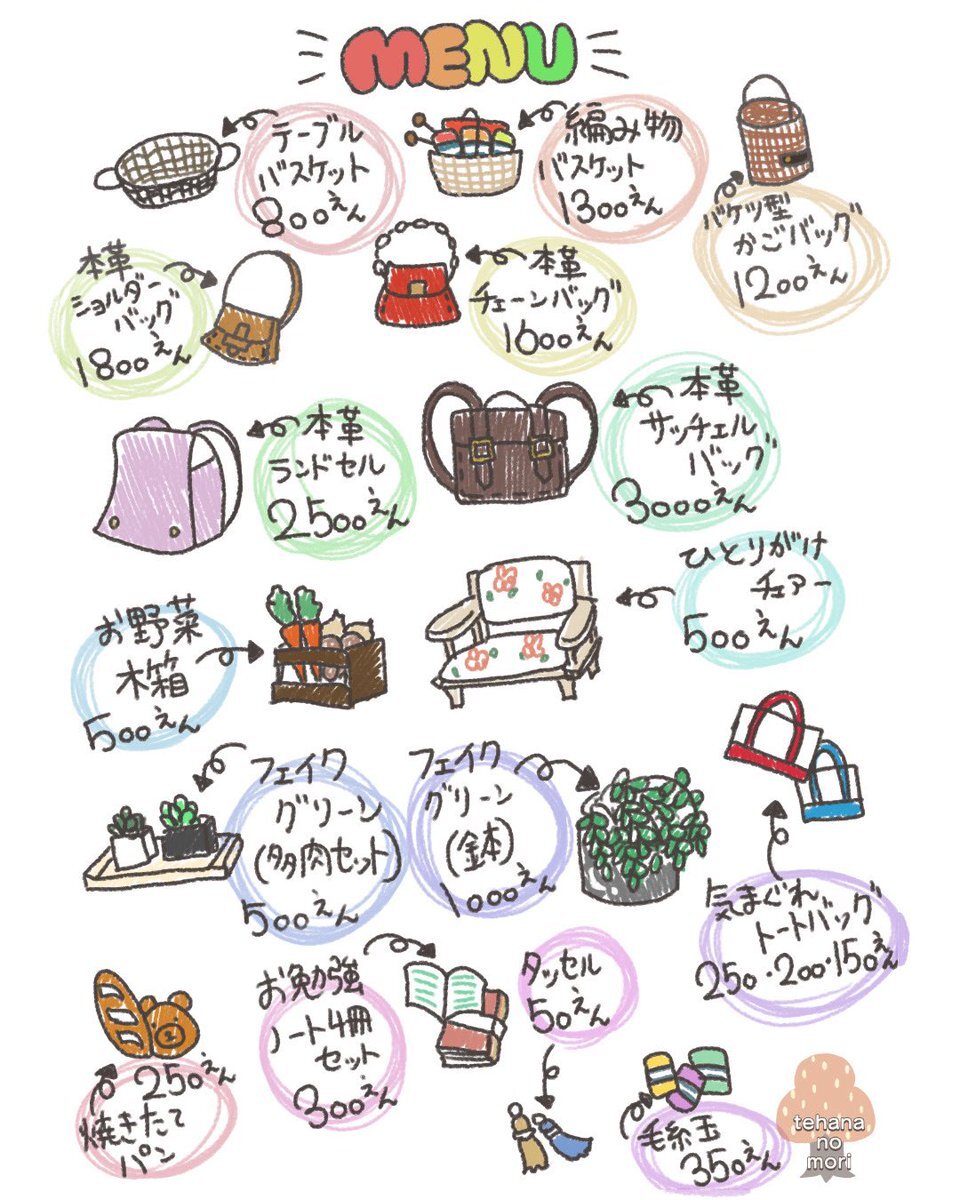 MENU
テーブル
バスケット
800えん
編み物
バスケット
1300えん
バケツ型
かごバッグ
1200えん
本革
ショルダー
バッグ
1800えん
本革
チェーンバッグ
1600えん
本革
ランドセル
2500えん
本革
サッチェル
バッグ
3000えん
ひとりがけ
チェアー
500えん
お野菜
木箱
500えん
フェイク
グリーン
(多肉セット)
500えん
フェイク
グリーン
(鉢)
1000えん
気まぐれ
トートバッグ
250・200・150えん
250えん
焼きたて
パン
お勉強
ノート4冊
セット
300えん
タッセル
50えん
毛糸玉
350えん
tehana
no
mori